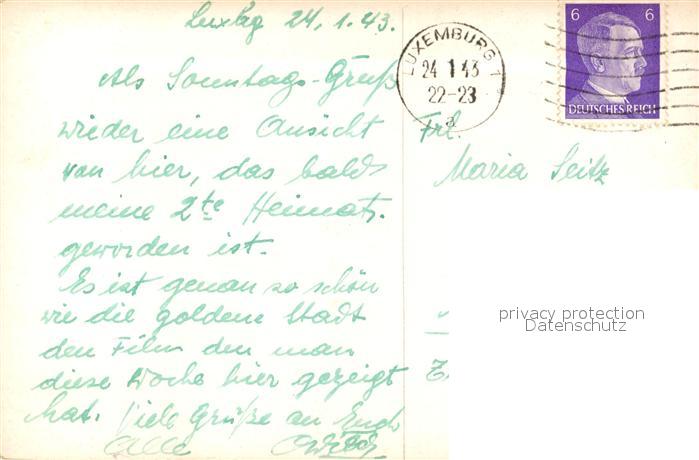 Luxbg 24.1.43.
Als Sonntags-Gruß
wieder eine Ansicht
von hier, das bald
meine 2te Heimat
geworden ist.
Es ist genau so schön
wie die goldene Stadt
den Film den man
diese Woche hier gezeigt
hat. Viele Grüße an Euch
alle
LUXEMBURG 1
24 1 43
22-23
a
6 6
DEUTSCHES REICH
Frl.
Maria Seitz
privacy protection
Datenschutz